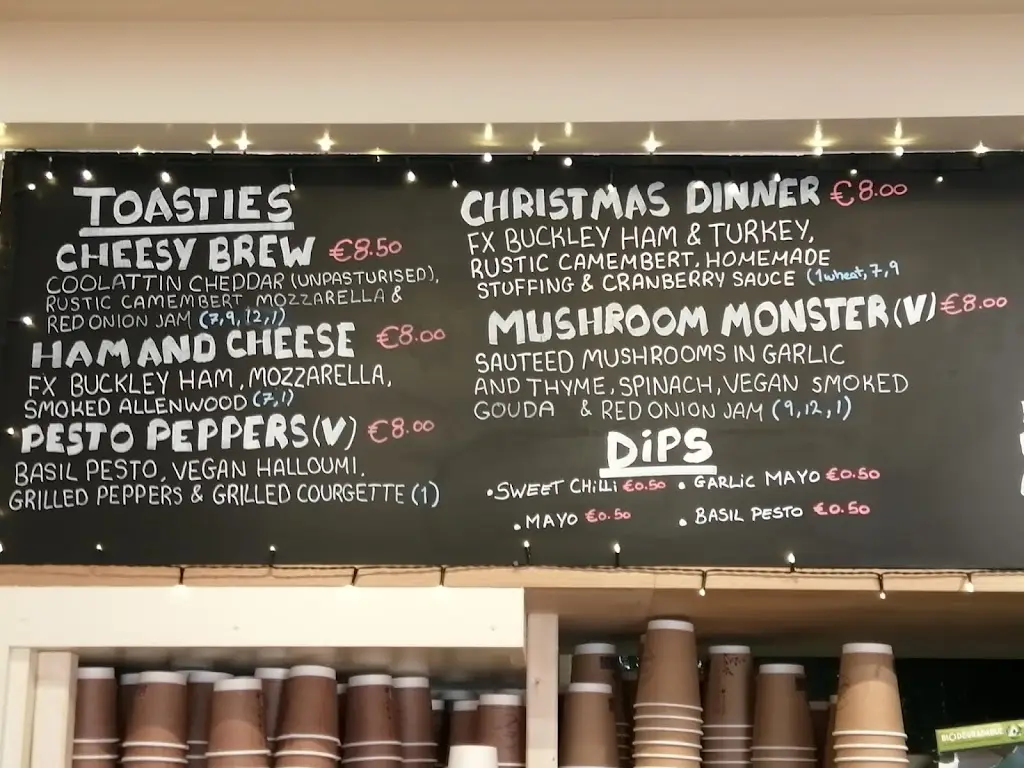 TOASTIES
CHEESY BREW €8.50
COOLATTIN CHEDDAR (UNPASTURISED),
RUSTIC CAMEMBERT, MOZZARELLA &
RED ONION JAM (7,9,12,1)
HAM AND CHEESE €8.00
FX BUCKLEY HAM, MOZZARELLA,
SMOKED ALLENWOOD (7,1)
PESTO PEPPERS (V) €8.00
BASIL PESTO, VEGAN HALLOUMI,
GRILLED PEPPERS & GRILLED COURGETTE (1)
CHRISTMAS DINNER €8.00
FX BUCKLEY HAM & TURKEY,
RUSTIC CAMEMBERT, HOMEMADE
STUFFING & CRANBERRY SAUCE (1wheat, 7,9
MUSHROOM MONSTER (V) €8.00
SAUTEED MUSHROOMS IN GARLIC
AND THYME, SPINACH, VEGAN SMOKED
GOUDA & RED ONION JAM (9,12,1)
DiPS
•SWEET CHiLLi €0.50 • GARLIC MAYO €0.50
•MAYO €0.50 • BASIL PESTO €0.50
BIODEGRADABLE